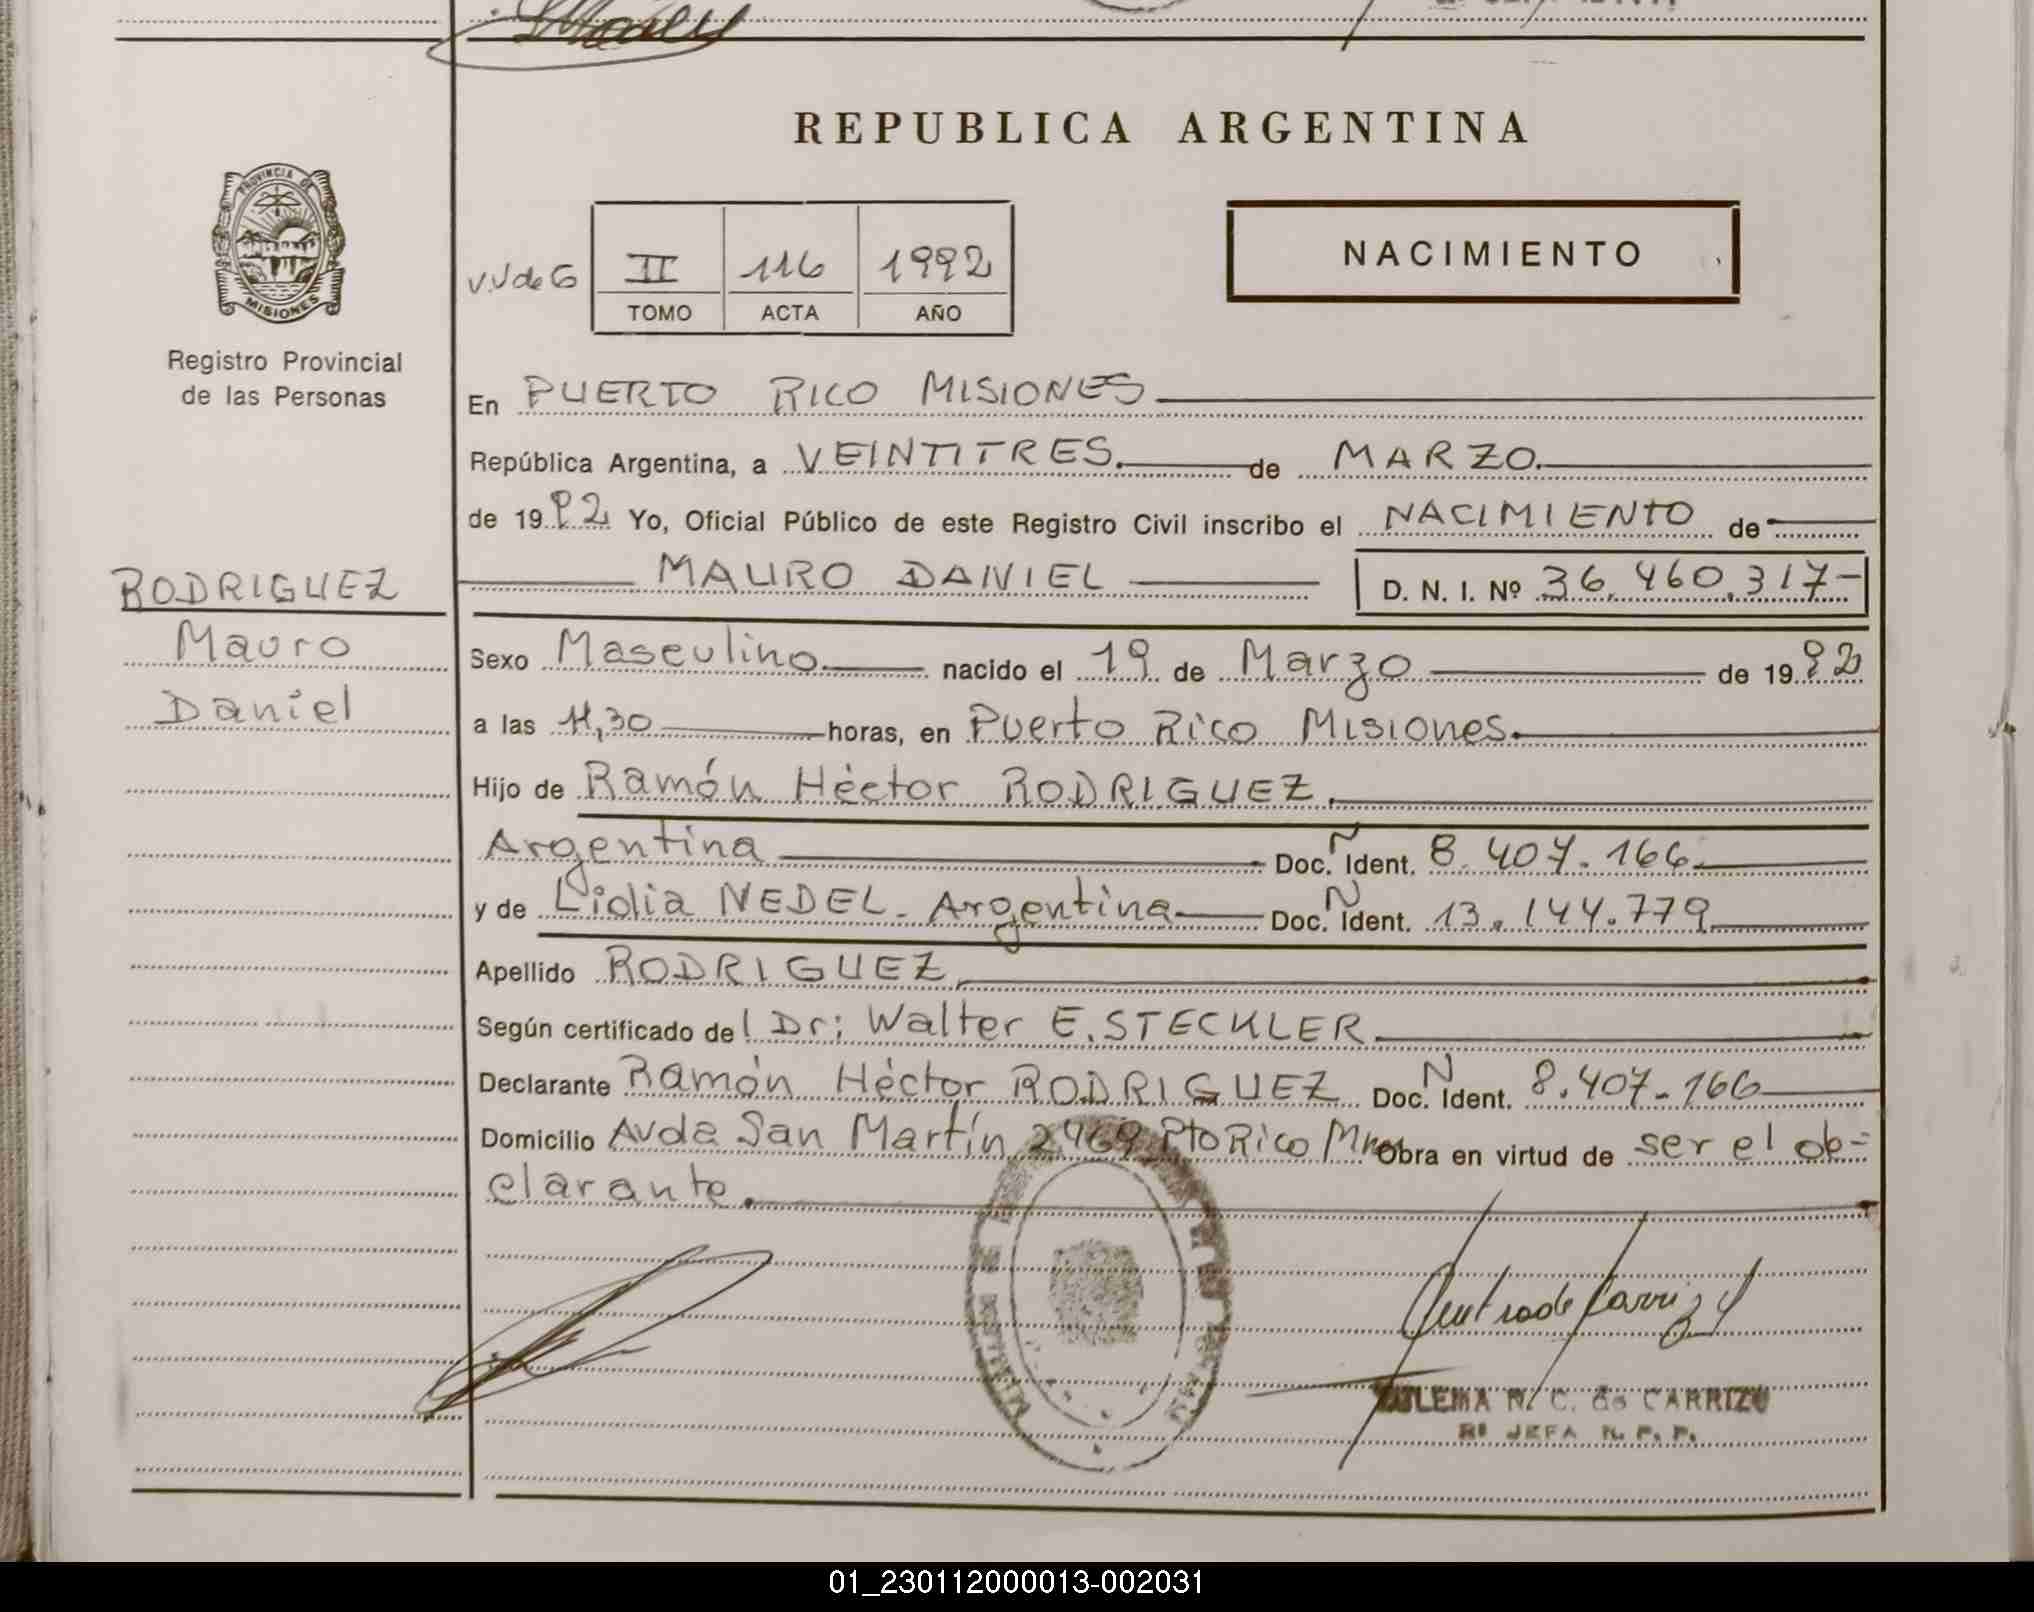 REPUBLICA ARGENTINA
PROVINCIA DE
MISIONES
Registro Provincial
de las Personas
II 116 1992
TOMO ACTA AÑO
NACIMIENTO
En PUERTO RICO MISIONES
República Argentina, a VEINTITRES. de MARZO.
de 1992 Yo, Oficial Público de este Registro Civil inscribo el NACIMIENTO de
MAURO DANIEL D. N. I. Nº 36.460.317-
RODRIGUEZ
Mauro
Daniel
Sexo Masculino nacido el 19 de Marzo de 1992
a las 11,30 horas, en Puerto Rico Misiones.
Hijo de Ramón Héctor RODRIGUEZ.
Argentina Doc. N Ident. 8.407.166
y de Lidia NEDEL - Argentina Doc. N Ident. 13.144.779
Apellido RODRIGUEZ
Según certificado del Dr: Walter E. STECKLER
Declarante Ramón Héctor RODRIGUEZ Doc. N Ident. 8.407-166
Domicilio Avda San Martín 2469 Pto Rico Mnes Obra en virtud de ser el de-
clarante.
N. C. de CARRIZO
JEFA R. P. P.
01_230112000013-002031